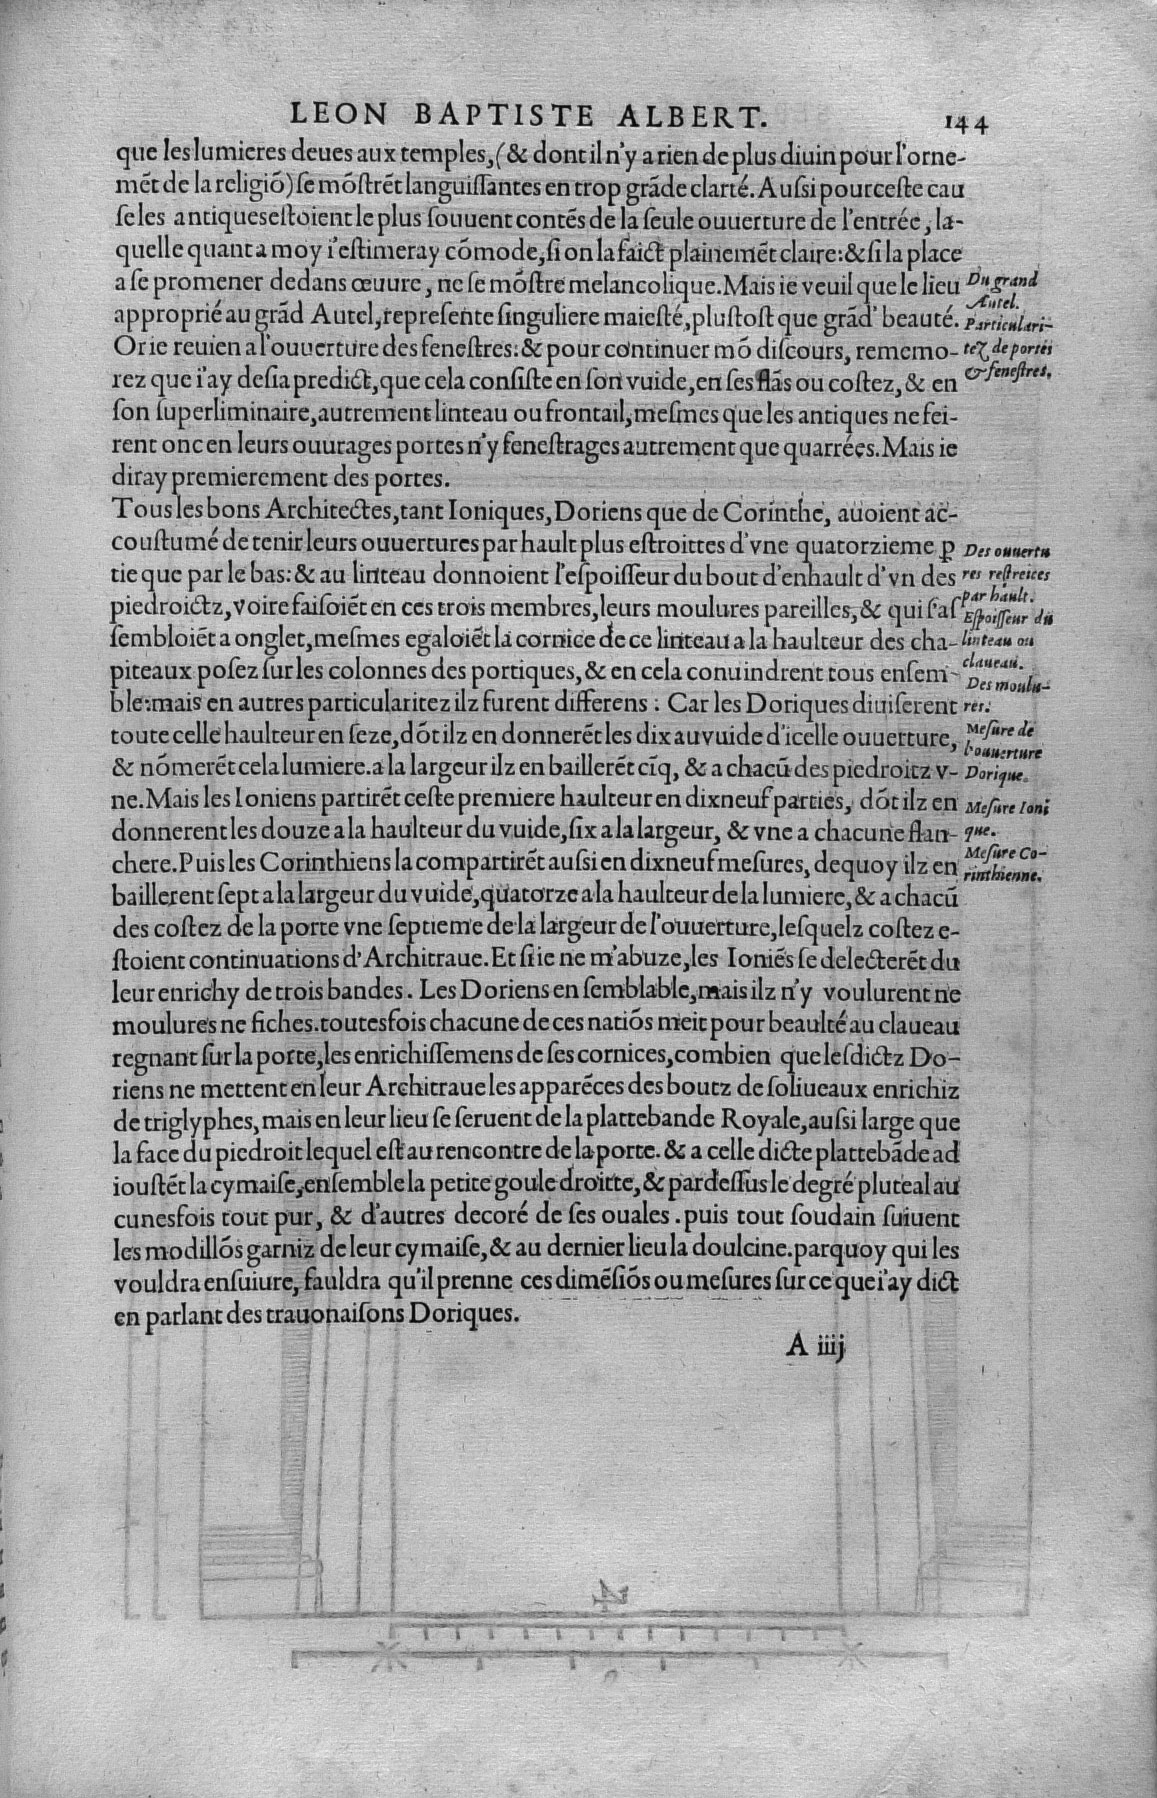 LEON BAPTISTE ALBERT. 144
que les lumieres deues aux temples, (& dont il n'y a rien de plus diuin pour l'orne-
mēt de la religiō) se mōstrēt languiſſantes en trop grāde clarté. Auſsi pour ceſte cau
ſe les antiques eſtoient le plus ſouuent contēs de la ſeule ouuerture de l'entrée, la-
quelle quant a moy i'eſtimeray cōmode, ſi on la faict plainemēt claire: & ſi la place
a ſe promener dedans œuure, ne ſe mōſtre melancolique. Mais ie veuil que le lieu
approprié au grād Autel, repreſente ſinguliere maieſté, pluſtoſt que grād' beauté.
Or ie reuien a l'ouuerture des feneſtres: & pour continuer mō diſcours, rememo-
rez que i'ay deſia predict, que cela conſiſte en ſon vuide, en ſes flās ou coſtez, & en
ſon ſuperliminaire, autrement linteau ou frontail, meſmes que les antiques ne fei-
rent onc en leurs ouurages portes n'y feneſtrages autrement que quarrées. Mais ie
diray premierement des portes.
Tous les bons Architectes, tant Ioniques, Doriens que de Corinthe, auoient ac-
couſtumé de tenir leurs ouuertures par hault plus eſtroittes d'vne quatorzieme ꝑ
tie que par le bas: & au linteau donnoient l'eſpoiſſeur du bout d'enhault d'vn des
piedroictz, voire faiſoiēt en ces trois membres, leurs moulures pareilles, & qui ſ'aſ
ſembloiēt a onglet, meſmes egaloiēt la cornice de ce linteau a la haulteur des cha-
piteaux poſez ſur les colonnes des portiques, & en cela conuindrent tous enſem-
ble: mais en autres particularitez ilz furent differens: Car les Doriques diuiſerent
toute celle haulteur en ſeze, dōt ilz en donnerēt les dix au vuide d'icelle ouuerture,
& nōmerēt cela lumiere. a la largeur ilz en baillerēt cīq, & a chacū des piedroitz v-
ne. Mais les Ioniens partirēt ceſte premiere haulteur en dixneuf parties, dōt ilz en
donnerent les douze a la haulteur du vuide, ſix a la largeur, & vne a chacune flan-
chere. Puis les Corinthiens la compartirēt auſsi en dixneuf meſures, dequoy ilz en
baillerent ſept a la largeur du vuide, quatorze a la haulteur de la lumiere, & a chacū
des coſtez de la porte vne ſeptieme de la largeur de l'ouuerture, leſquelz coſtez e-
ſtoient continuations d'Architraue. Et ſi ie ne m'abuze, les Ioniēs ſe delecterēt du
leur enrichy de trois bandes. Les Doriens en ſemblable, mais ilz n'y voulurent ne
moulures ne fiches. toutesfois chacune de ces natiōs meit pour beaulté au claueau
regnant ſur la porte, les enrichiſſemens de ſes cornices, combien que leſdictz Do-
riens ne mettent en leur Architraue les apparēces des boutz de ſoliueaux enrichiz
de triglyphes, mais en leur lieu ſe ſeruent de la plattebande Royale, auſsi large que
la face du piedroit lequel eſt au rencontre de la porte. & a celle dicte plattebāde ad
iouſtēt la cymaiſe, enſemble la petite goule droitte, & pardeſſus le degré pluteal au
cunesfois tout pur, & d'autres decoré de ſes ouales. puis tout ſoudain ſuiuent
les modillōs garniz de leur cymaiſe, & au dernier lieu la doulcine. parquoy qui les
vouldra enſuiure, fauldra qu'il prenne ces dimēſiōs ou meſures ſur ce que i'ay dict
en parlant des trauonaiſons Doriques.
A iiij
Du grand
Autel.
Particulari-
tez de portes
& feneſtres.
Des ouuertu
res reſtreices
par hault.
Eſpoiſſeur du
linteau ou
claueau.
Des moulu-
res.
Meſure de
l'ouuerture
Dorique.
Meſure Ioni
que.
Meſure Co-
rinthienne.